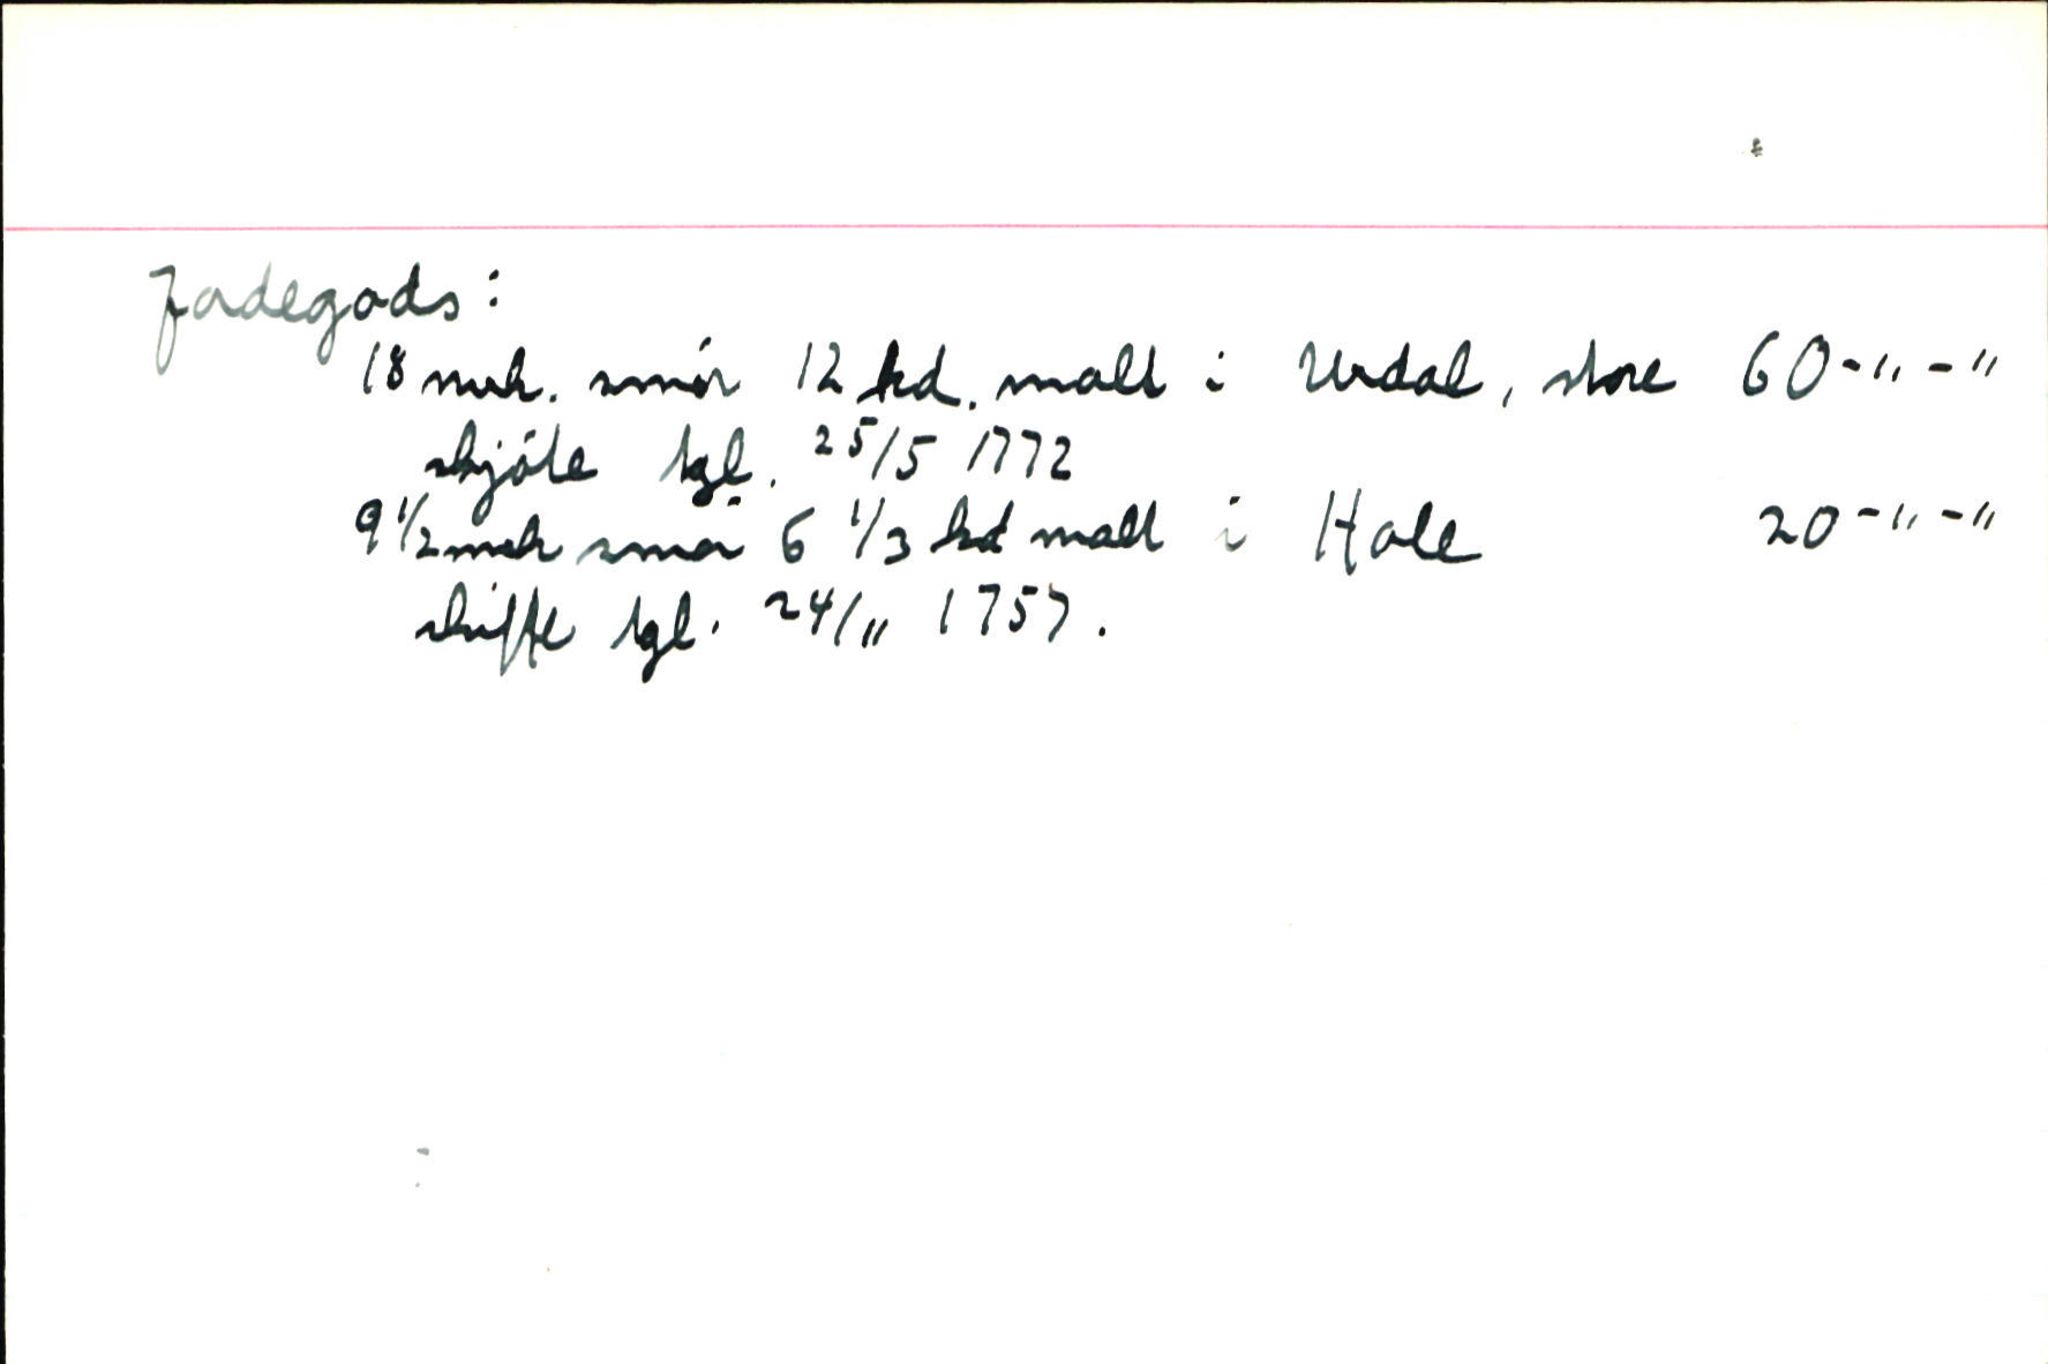 Jordegods:
18 mrk. smör 12 kd. malt i Urdal, store 60-"-"
skjöte tgl. 25/5 1772
9 1/2 mrk smör 6 1/3 kd malt i Hole 20-"-"
skifte tgl. 24/11 1757.